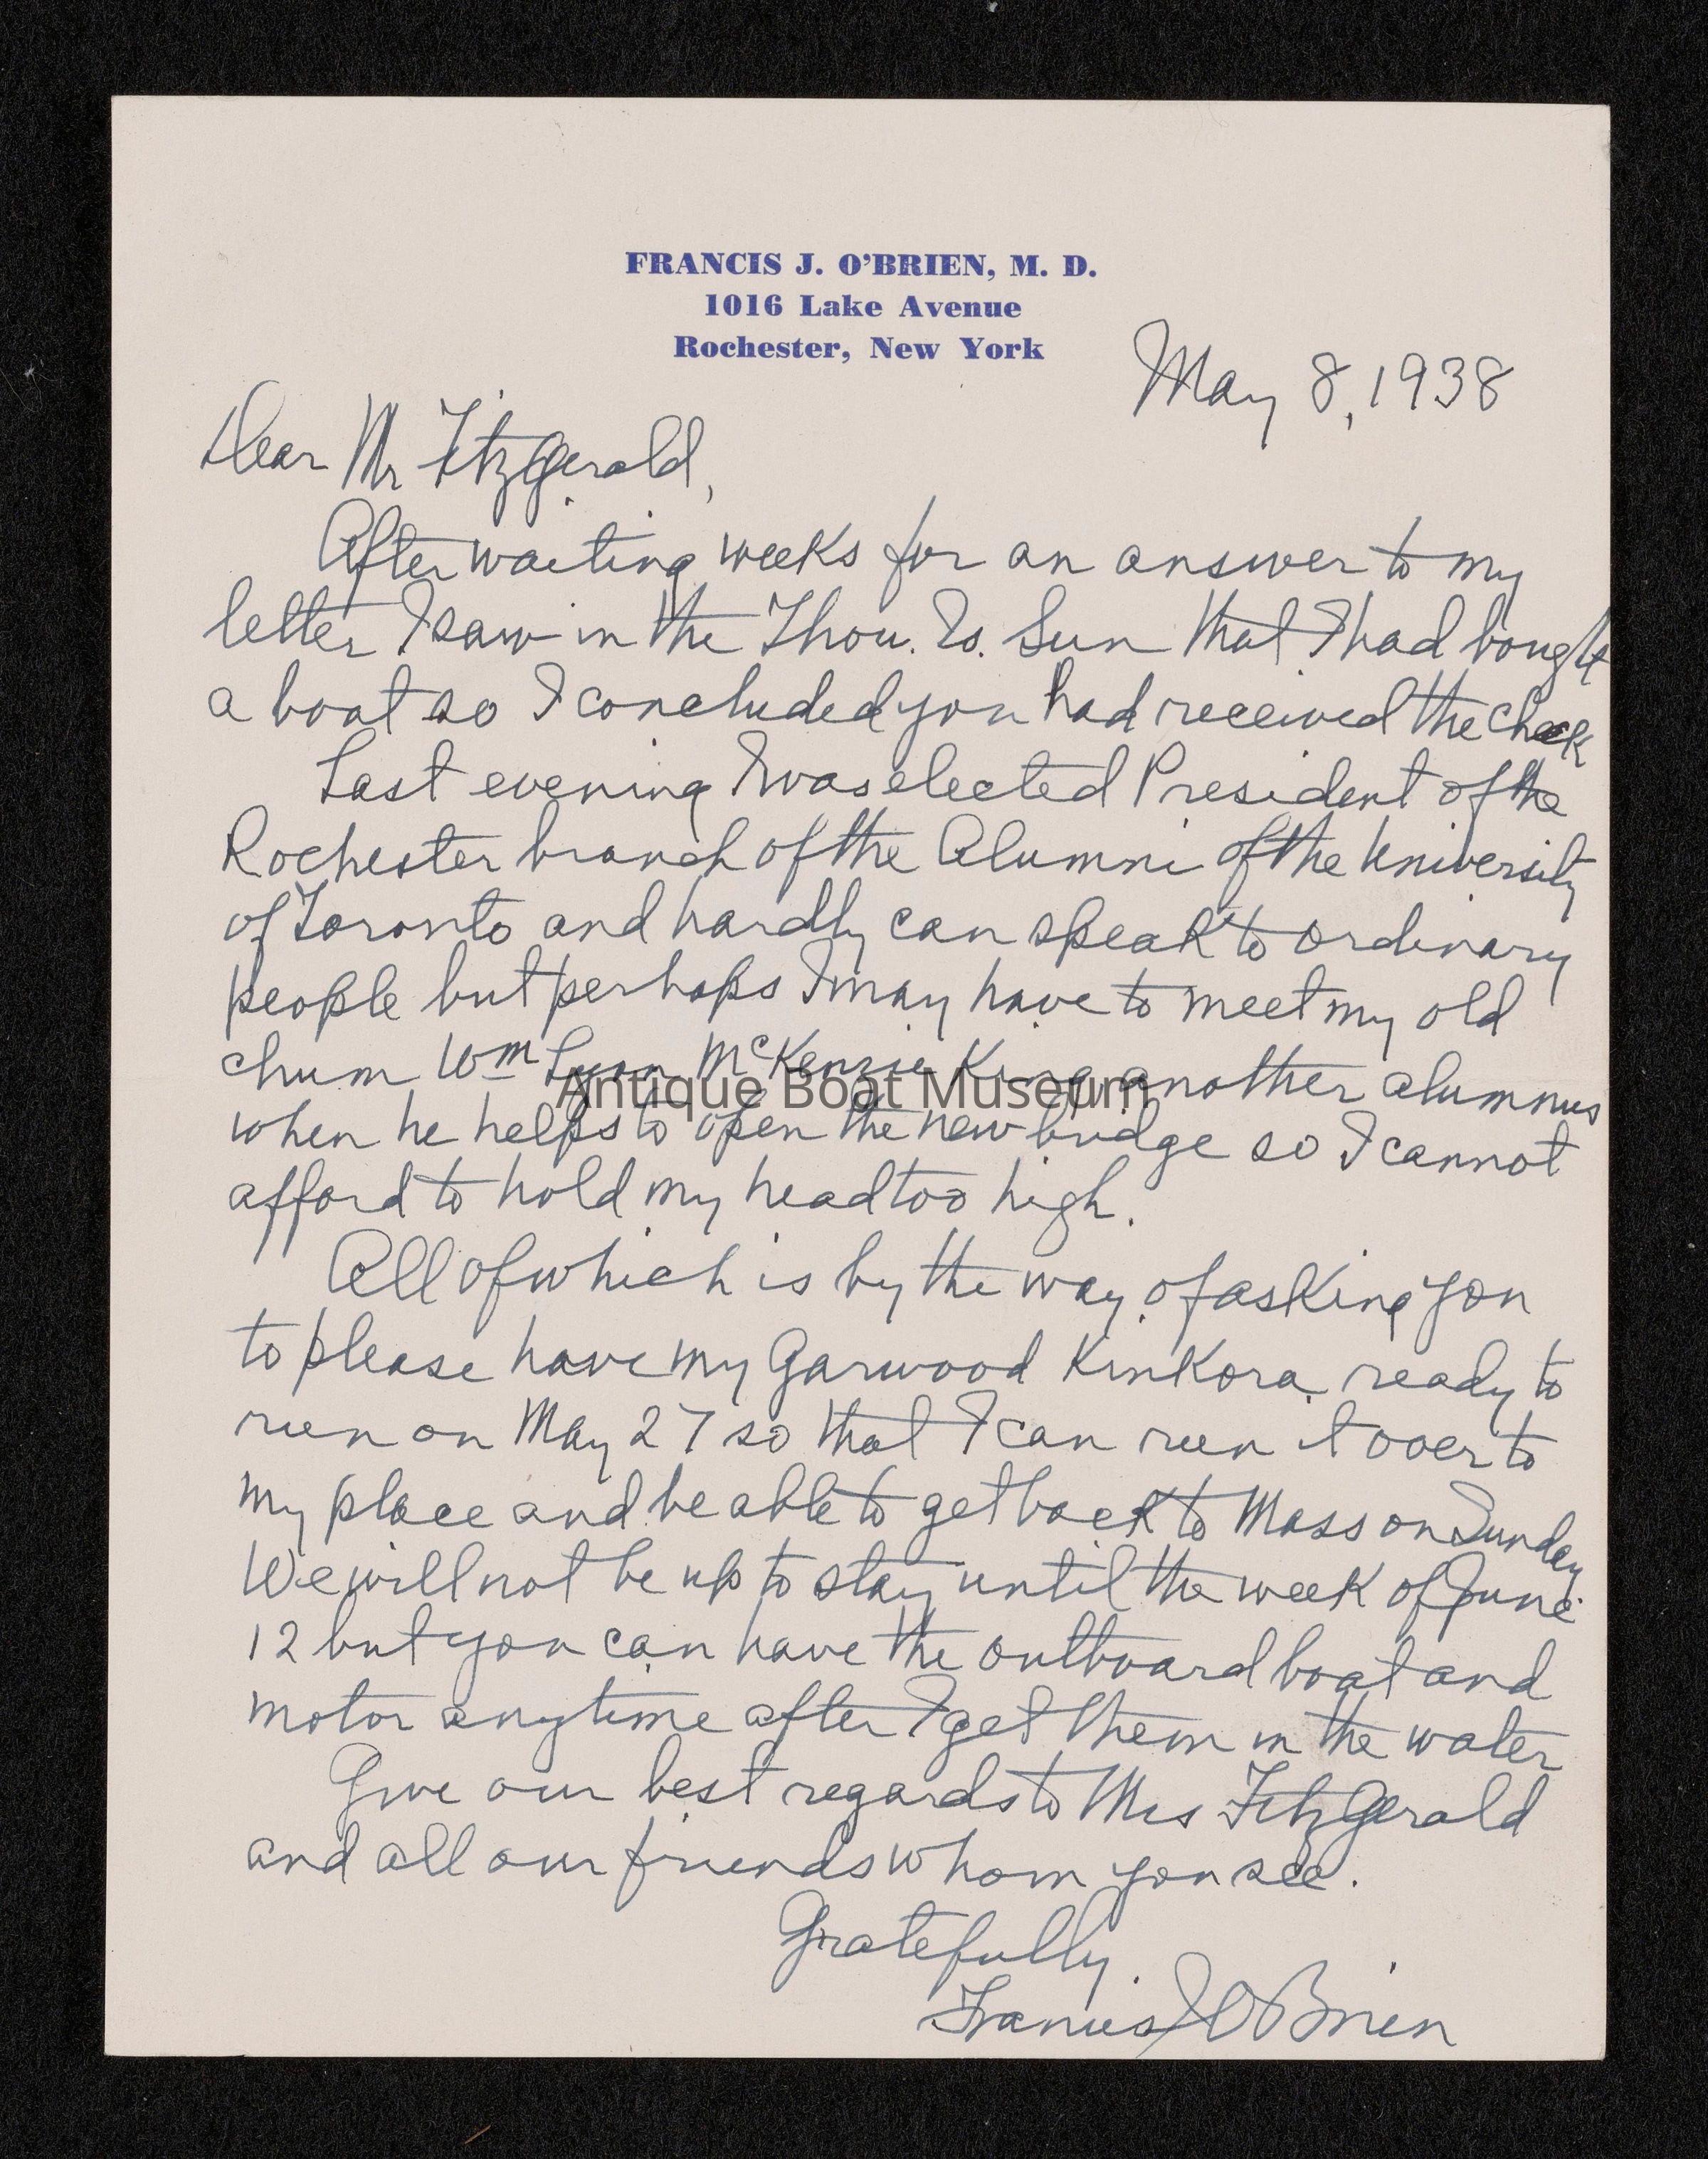 FRANCIS J. O'BRIEN, M. D.
1016 Lake Avenue
Rochester, New York
May 8, 1938
Dear Mr FitzGerald,
After waiting weeks for an answer to my
letter I saw in the Thou. Is. Sun that I had bought
a boat so I concluded you had received the check
Last evening I was elected President of the
Rochester branch of the Alumni of the University
of Toronto and hardly can speak to ordinary
people but perhaps I may have to meet my old
chum Wm Lyon McKenzie King, another alumnus
Antique Boat Museum
when he helps to open the new bridge so I cannot
afford to hold my head too high.
All of which is by the way of asking you
to please have my Garwood Kinkora ready to
run on May 27 so that I can run it over to
my place and be able to get back to Mass on Sunday
We will not be up to stay until the week of June
12 but you can have the outboard boat and
motor anytime after I get them in the water
Give our best regards to Mrs FitzGerald
and all our friends whom you see.
Gratefully.
Francis J O'Brien